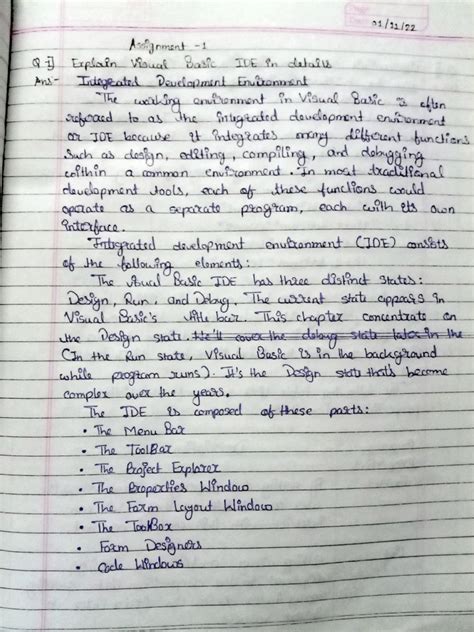 01/11/22
Assignment - 1
Q-1] Explain Visual Basic IDE in details
Ans:- Integrated Development Environment
"The working environment in Visual Basic is often
referred to as the integrated development environment
or IDE because it integrates many different functions
such as design, editing, compiling, and debugging
within a common environment. In most traditional
development tools, each of these functions would
operate as a separate program, each with its own
interface.
"Integrated development environment (IDE) consists
of the following elements:
The Visual Basic IDE has three distinct states:
Design, Run, and Debug. The current state appears in
Visual Basic's title bar. This chapter concentrate on
the Design state. We'll cover the debug state later in the
(In the Run state, Visual Basic is in the background
while program runs). It's the Design state that's become
complex over the years.
The IDE is composed of these parts:
• The Menu Bar
• The ToolBar
• The Project Explorer
• The Properties Window
• The Form Layout Window
• The ToolBox
• Form Designers
• Code Windows